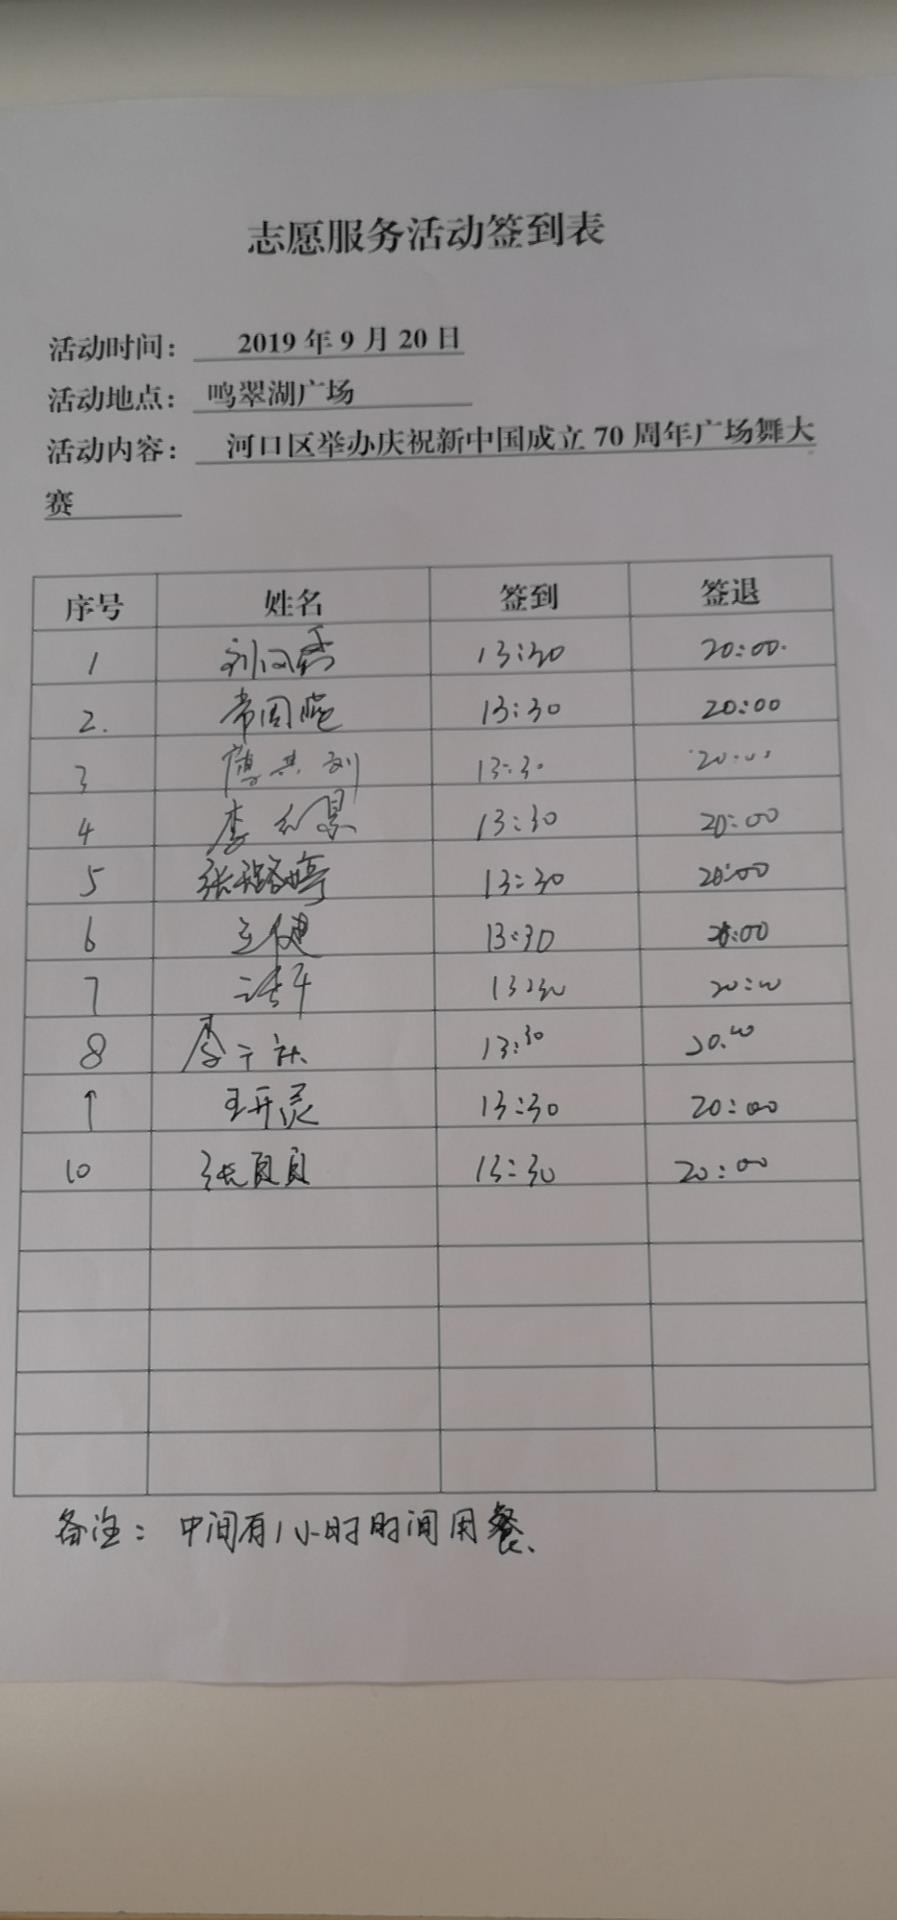 志愿服务活动签到表
活动时间: 2019 年 9 月 20 日
活动地点: 鸣翠湖广场
活动内容: 河口区举办庆祝新中国成立 70 周年广场舞大
赛
序号 姓名 签到 签退
1 13:30 20:00
2. 13:30 20:00
3 13:30
4 李 13:30 20:00
5 张路婷 13:30 20:00
6 王健 13:30 20:00
7 13:30 20:00
8 李 13:30 20:00
王开灵 13:30 20:00
10 张真真 13:30 20:00
备注: 中间有1小时时间用餐.